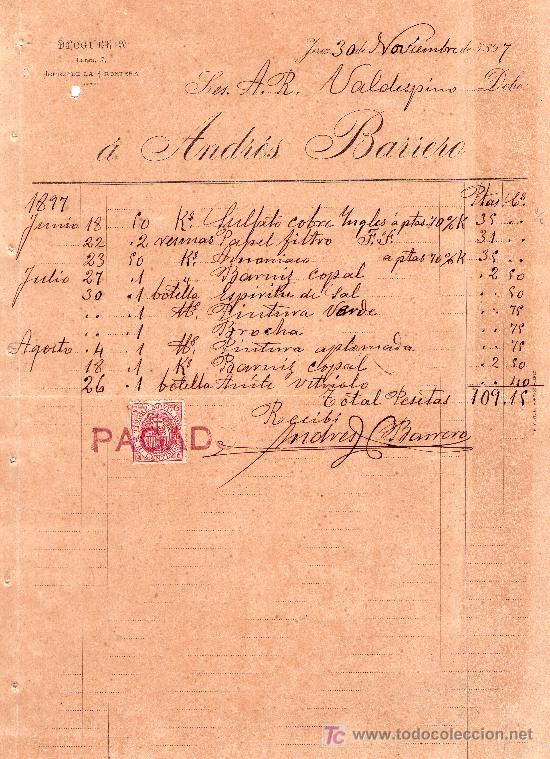 DROGUERIA
JEREZ DE LA FRONTERA
Jerez 30 de Noviembre de 1897
Sres. A. R. Valdespino Debe
á Andrés Barrero
1897 Ptas Cs
Junio 18 50 Ks Sulfato cobre Ingles á ptas 70 % K 35 ..
22 .2 resmas Papel filtro F. F. 31 ..
23 50 Ks Amoniaco a ptas 70 % K 35 ..
Julio 27 .1 " Barniz copal .2 50
30 .1 botella Espiritu de Sal .. 50
.. .1 Ko Pintura Verde .. 75
.. .1 Brocha .. 75
Agosto .4 .1 Ko Pintura aplomada .. 75
18 .1 Ko Barniz Copal .2 50
26 .1 botella Aceite Vitriolo .. 40
Total Pesetas 109,15
Recibí
PAGADO
Andres Barrero
TC www.todocoleccion.net